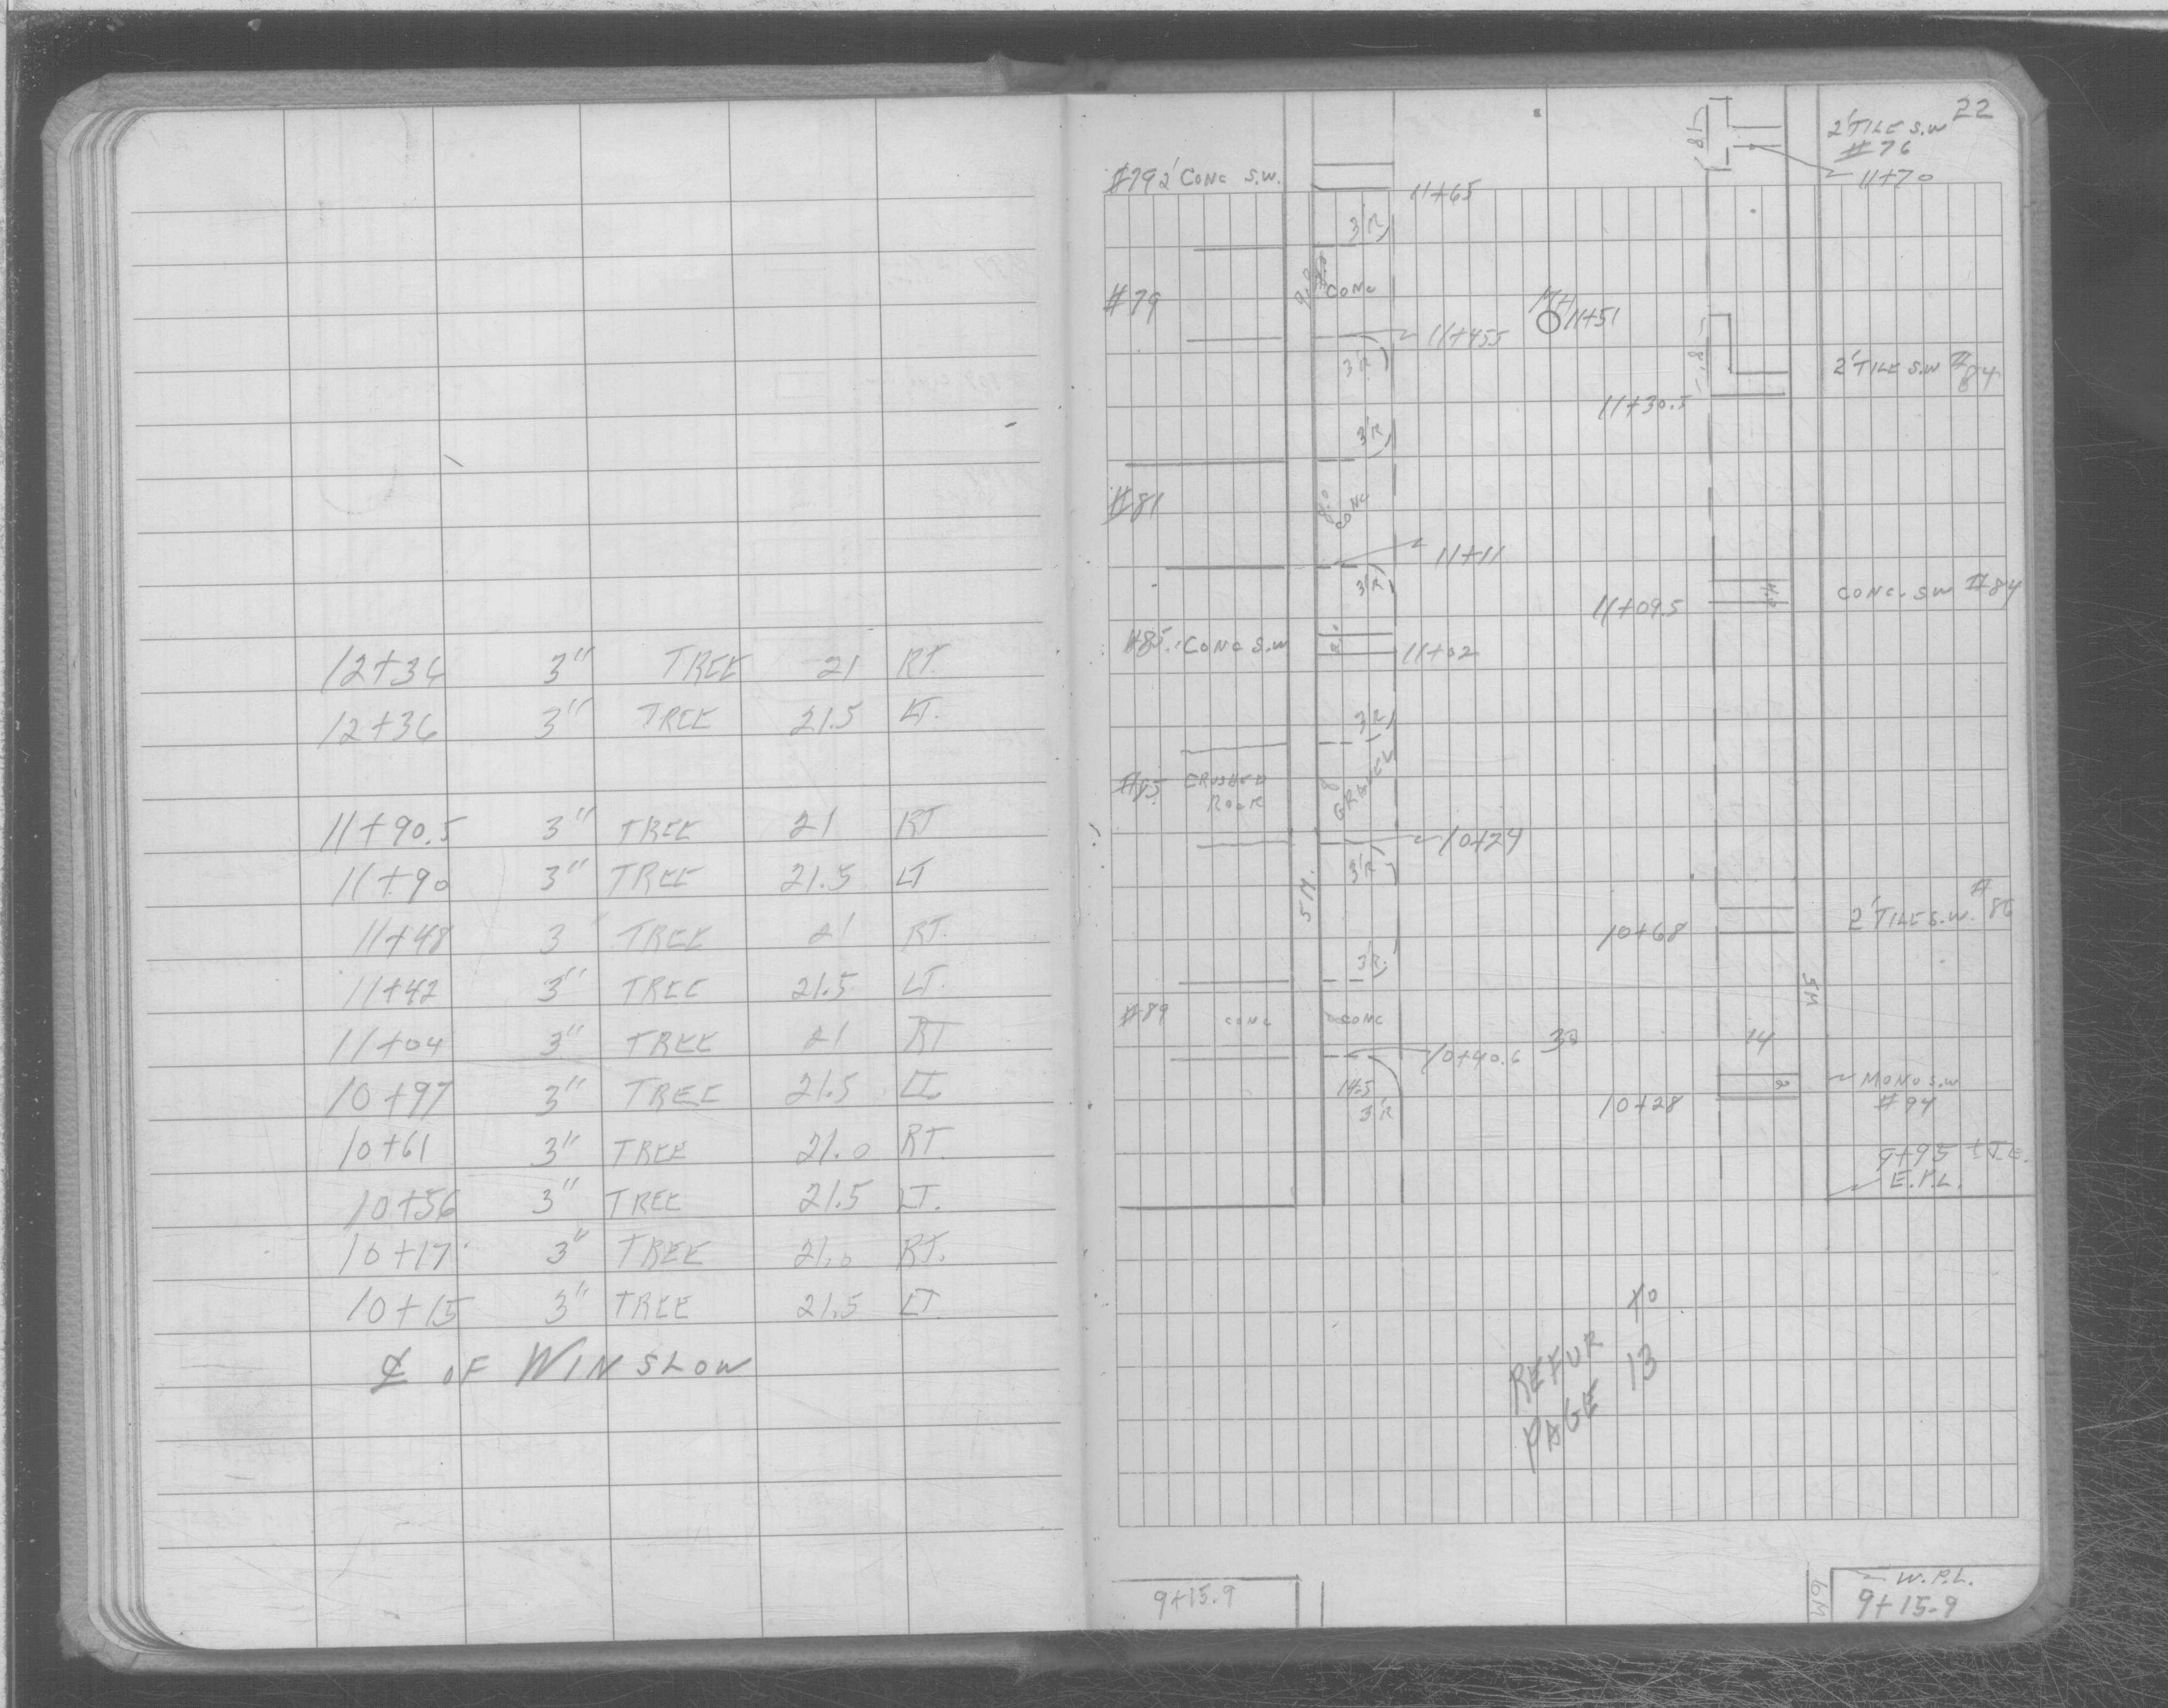 12+36 3" TREE 21 RT.
12+36 3" TREE 21.5 LT.
11+90.5 3" TREE 21 RT
11+90 3" TREE 21.5 LT
11+48 3" TREE 21 RT.
11+42 3" TREE 21.5 LT.
11+04 3" TREE 21 RT
10+97 3" TREE 21.5 LT.
10+61 3" TREE 21.0 RT.
10+56 3" TREE 21.5 LT.
10+17 3" TREE 21.0 RT.
10+15 3" TREE 21.5 LT
℄ OF WINSLOW
22
2' TILE S.W
#76
11+70
18
#79 2' CONC S.W.
11+65
3'R
#79
CONC
MH
11+51
11+45.5
3'R
2' TILE S.W #84
11+30.5
3'R
#81
8.0
CONC
11+11
3'R
CONC. S.W #84
11+09.5
#85 CONC S.W
11+02
3'R
#85 CRUSHED
ROCK
GRAVEL
10+74
3'R
5 M.
2' TILE S.W. #86
10+68
3'R
5M
#89 CONC CONC
10+40.6
14
14.5
3'R
MONO S.W
#94
10+28
9+95
E.P.L.
10
REFUR
PAGE 13
9+15.9
6M
W.P.L.
9+15.9